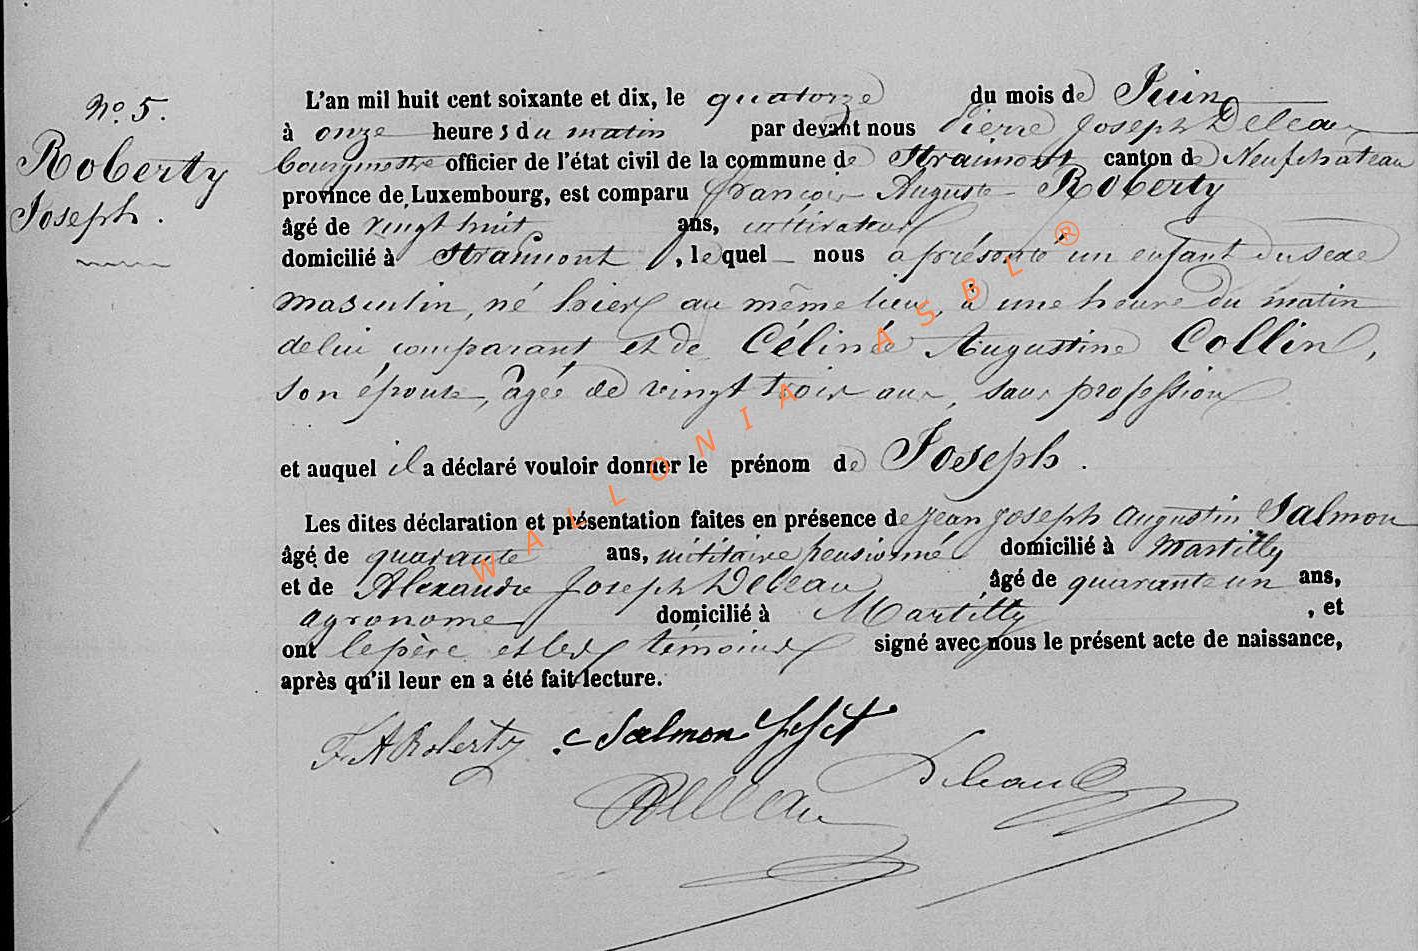 No. 5.
Roberty
Joseph.
L'an mil huit cent soixante et dix, le quatorze du mois de Juin
à onze heures du matin par devant nous Pierre Joseph Deleau
bourgmestre officier de l'état civil de la commune de Straimont canton de Neufchateau
province de Luxembourg, est comparu françois Auguste Roberty
âgé de vingt huit ans, cultivateur
domicilié à Straimont, lequel nous a présenté un enfant du sexe
masculin, né hier au même lieu, à une heure du matin
de lui comparant et de Célinée Augustine Collin,
son épouse, âgée de vingt trois ans, sans profession
et auquel il a déclaré vouloir donner le prénom de Joseph.
Les dites déclaration et présentation faites en présence de Jean Joseph Augustin Salmon
âgé de quarante ans, militaire pensionné domicilié à Martilly
et de Alexandre Joseph Deleau âgé de quarante un ans,
agronome domicilié à Martilly, et
ont le père et les témoins signé avec nous le présent acte de naissance,
après qu'il leur en a été fait lecture.
F. A Roberty Salmon
Deleau Deleau
WALLONIA ASBL ®